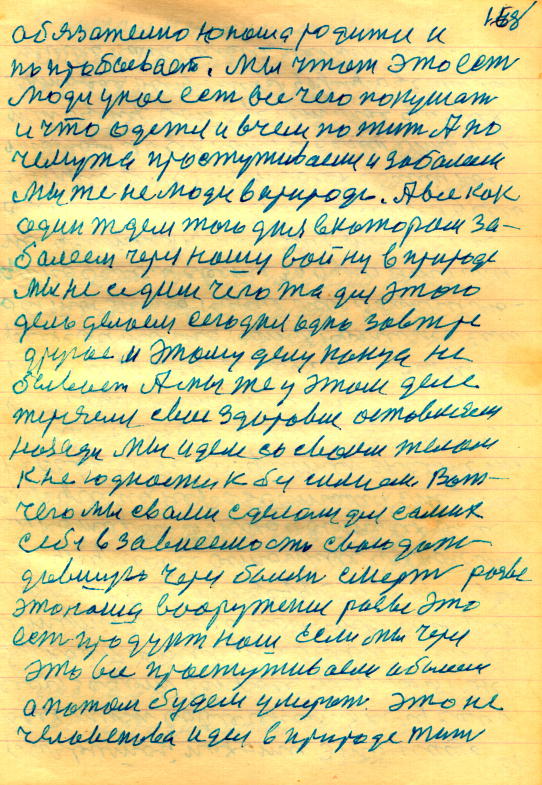 158
обязателно юноша родится и
попробывает. Мы чтож это ест
люди у нас ест все чего покушат
и что одется и в чем пожит А по
чемужа простуживаем и заболеем
мы же не люди в природе. А все как
один ждем того дня в котором за-
балеем через нашу войну в природе
мы не сидим чегожа для этого
дела делаем сегодня одно завтре
другое и этому делу конца не
бывает А мы же у этом деле
теряем свои здоровие оставляем
назади мы идем со своим телом
к не годности к бесилием. Вот-
чего мы с вами сделали для самих
себя в зависемость свою дож-
давшуюь через болезн смерт разве
это наша вооружение разве это
ест продукт наш если мы через
это все простуживаем и болеем
а потом будем умират. Это не
человекова идея в природе жит